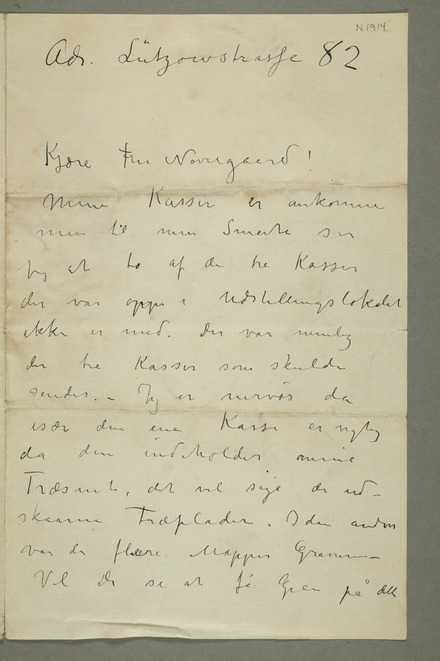 N 1914
Adr. Lützowstrasse 82
Kjære Fru Nørregaard!
Mine Kasser er ankomne
men til min Smerte ser
jeg at to af de tre Kasser
der var oppe i Udstillingslokalet
ikke er med. Der var nemlig
der tre Kasser som skulde
sendes. – Jeg er nervøs da
især den ene Kasse er vigtig
da den indeholder mine
Træsnit, det vil sige de ud-
skaarne Træplader. I den anden
var der flere Mapper Gravurer –
Vil De se at få Greie på dette